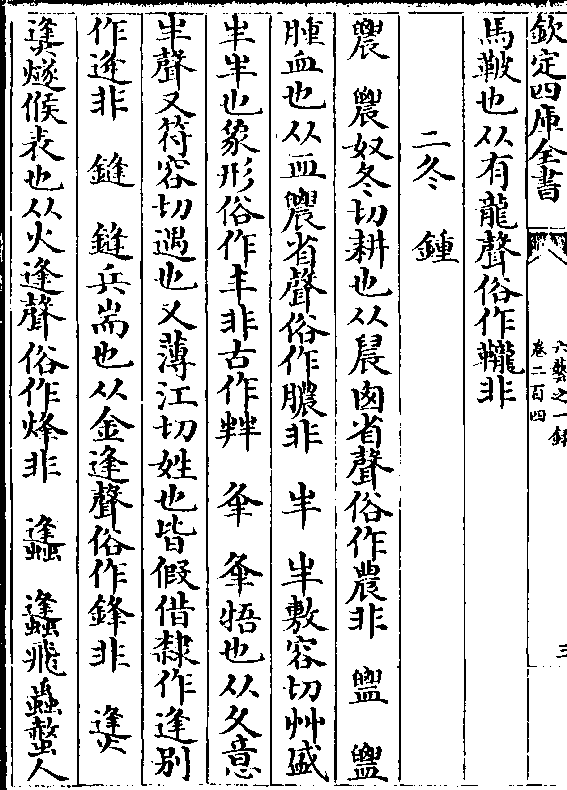 欽定四庫全書
六藝之一錄
卷二百四
三
馬鞁也从有龍聲俗作韀非
二冬 鍾
農 農奴冬切耕也从晨囱省聲俗作農非 盥 盥
腫血也从血農省聲俗作膿非 半 半敷容切艸盛
半半也象形俗作丰非古作𡴀 夆 夆牾也从夂意
半聲又符容切遇也又薄江切姓也皆假借隸作逢別
作逄非 鏠 鏠兵耑也从金逢聲俗作鋒非 㷭
㷭燧候表也从火逢聲俗作烽非 𧓙 𧓙飛蟲螫人